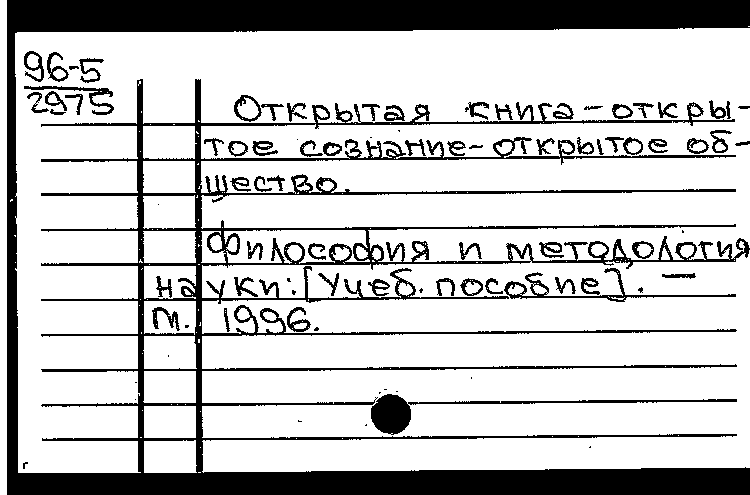 96-5
2975
Открытая книга-откры-
тое сознание-открытое об-
щество.
Философия и методология
науки: [Учеб. пособие]. —
М. 1996.